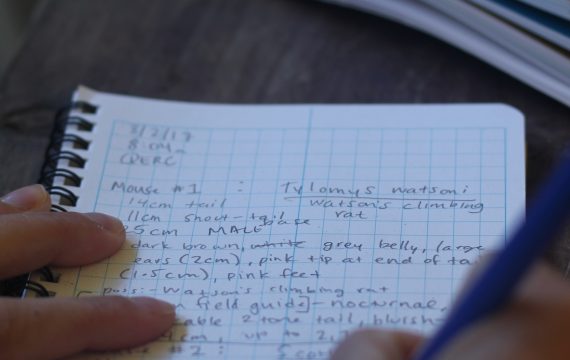 3/2/17
8:cm
CDERC
Mouse #1 : Tylomys watsoni
14cm tail Watson's climbing
11cm snout-tail base rat
25cm MALE
dark brown, white grey belly, large
ears (2cm), pink tip at end of tai
(1.5cm), pink feet
poss:- Watson's climbing rat
field guide]- nocturnal,
able 2 tone tail, bluish-
cm, up to 2,7
#2 :